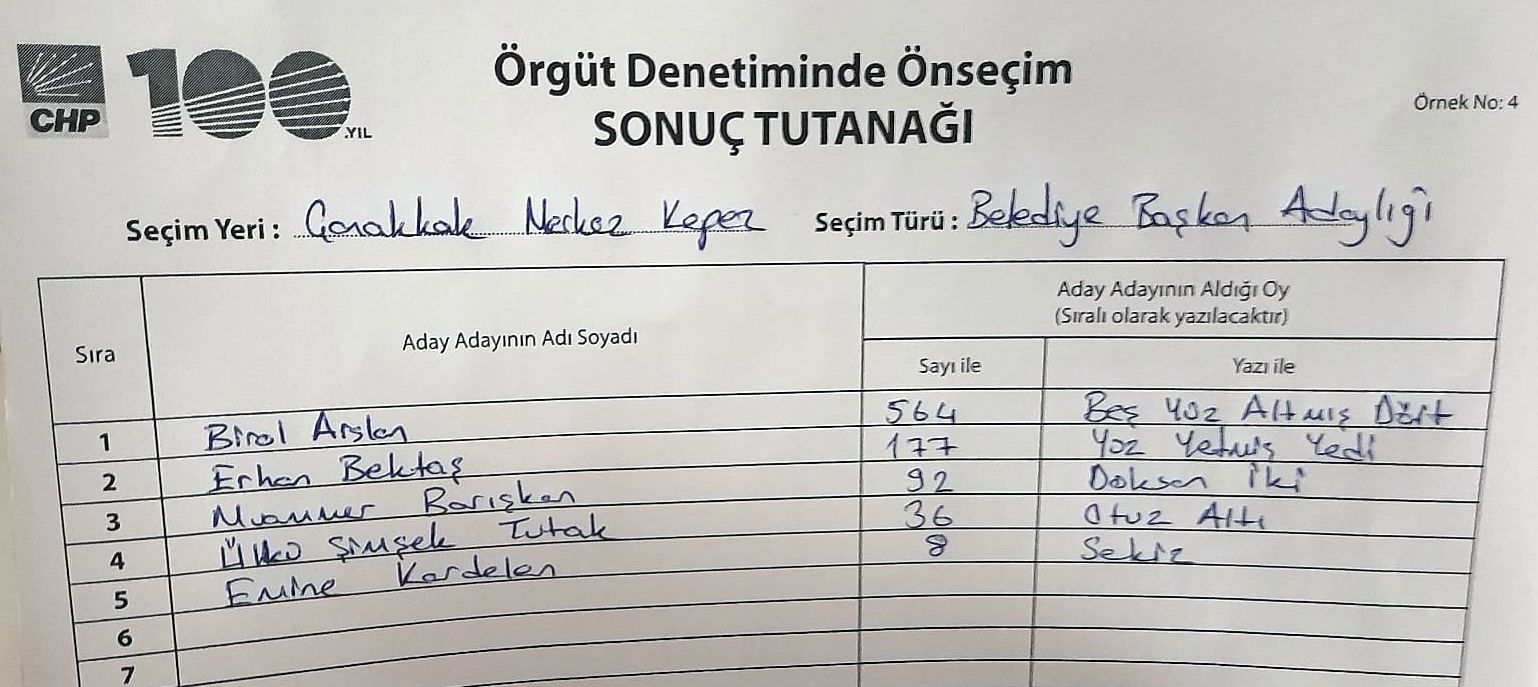 CHP 100 .YIL
Örgüt Denetiminde Önseçim
SONUÇ TUTANAĞI
Örnek No: 4
Seçim Yeri : Çanakkale Merkez Kepez Seçim Türü : Belediye Başkan Adaylığı
Sıra Aday Adayının Adı Soyadı Aday Adayının Aldığı Oy
(Sıralı olarak yazılacaktır)
Sayı ile Yazı ile
1 Birol Arslan 564 Beş Yüz Altmış Dört
2 Erhan Bektaş 177 Yüz Yetmiş Yedi
3 Muammer Barışkan 92 Doksan İki
4 Ülkü Şimşek Tutak 36 Otuz Altı
5 Emine Kardelen 8 Sekiz
6
7